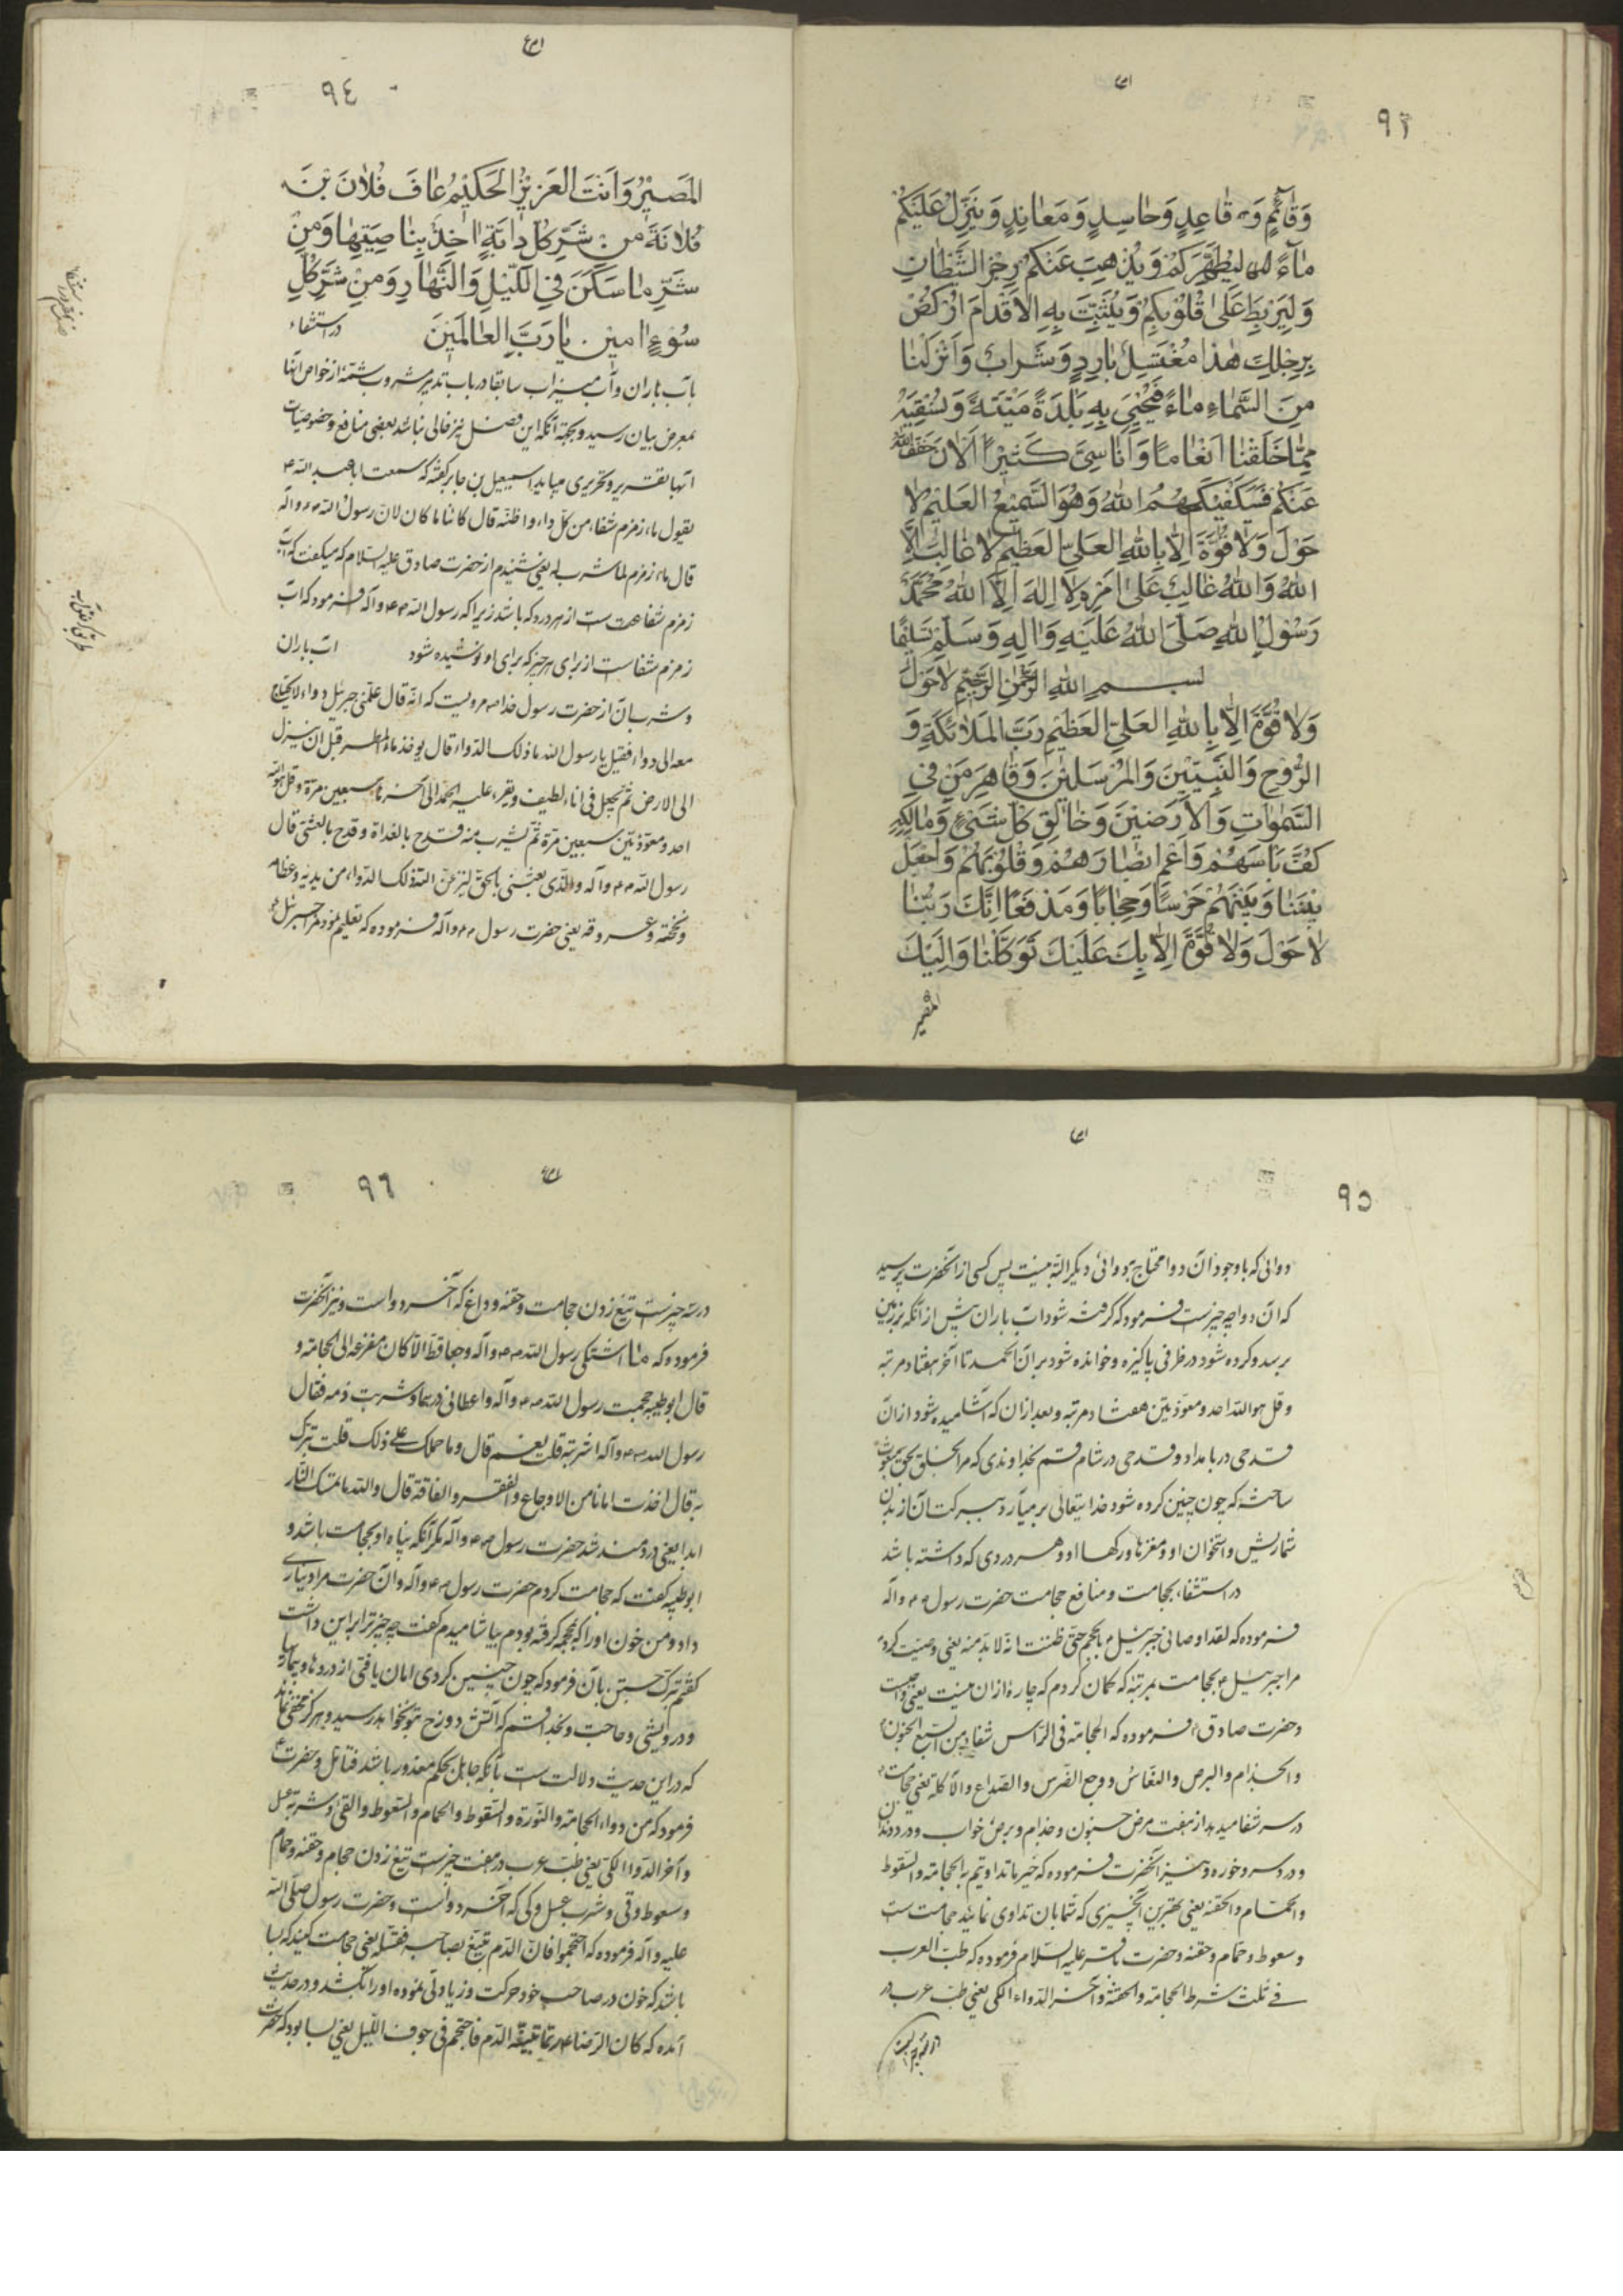 ٩٣
وَقَائِمٍ وَقَاعِدٍ وَحَاسِدٍ وَمَعَانِدٍ وَيُنَزِّلُ عَلَيْكُمْ
مَاءً لِيُطَهِّرَكُمْ وَيُذْهِبَ عَنْكُمْ رِجْزَ الشَّيْطَانِ
وَلِيَرْبِطَ عَلَىٰ قُلُوبِكُمْ وَيُثَبِّتَ بِهِ الْأَقْدَامَ ارْكُضْ
بِرِجْلِكَ هٰذَا مُغْتَسَلٌ بَارِدٌ وَشَرَابٌ وَأَنْزَلْنَا
مِنَ السَّمَاءِ مَاءً فَيُحْيِيَ بِهِ بَلْدَةً مَيْتَةً وَنُسْقِيَهُ
مِمَّا خَلَقْنَا أَنْعَامًا وَأَنَاسِيَّ كَثِيرًا الْآنَ خَفَّفَ اللّٰهُ
عَنْكُمْ فَسَيَكْفِيكَهُمُ اللّٰهُ وَهُوَ السَّمِيعُ الْعَلِيمُ لَا
حَوْلَ وَلَا قُوَّةَ إِلَّا بِاللّٰهِ الْعَلِيِّ الْعَظِيمِ لَا غَالِبَ إِلَّا
اللّٰهُ وَاللّٰهُ غَالِبٌ عَلَىٰ أَمْرِهِ لَا إِلٰهَ إِلَّا اللّٰهُ مُحَمَّدٌ
رَسُولُ اللّٰهِ صَلَّى اللّٰهُ عَلَيْهِ وَآلِهِ وَسَلَّمَ تَسْلِيمًا
بِسْمِ اللّٰهِ الرَّحْمٰنِ الرَّحِيمِ لَا حَوْلَ
وَلَا قُوَّةَ إِلَّا بِاللّٰهِ الْعَلِيِّ الْعَظِيمِ رَبَّ الْمَلَائِكَةِ وَ
الرُّوحِ وَالنَّبِيِّينَ وَالْمُرْسَلِينَ وَقَاهِرَ مَنْ فِي
السَّمٰوَاتِ وَالْأَرَضِينَ وَخَالِقَ كُلِّ شَيْءٍ وَمَالِكَهُ
كُفَّ بَأْسَهُمْ وَأَعْمِ أَبْصَارَهُمْ وَقُلُوبَهُمْ وَاجْعَلْ
بَيْنَنَا وَبَيْنَهُمْ حَرَسًا وَحِجَابًا وَمَدْفَعًا إِنَّكَ رَبُّنَا
لَا حَوْلَ وَلَا قُوَّةَ إِلَّا بِكَ عَلَيْكَ تَوَكَّلْنَا وَإِلَيْكَ
المصیر
٩٤
الْمَصِيرُ وَأَنْتَ الْعَزِيزُ الْحَكِيمُ عَافِ فُلَانَ بْنَ
فُلَانَةَ مِنْ شَرِّ كُلِّ دَابَّةٍ اٰخِذٌ بِنَاصِيَتِهَا وَمِنْ
شَرِّ مَا سَكَنَ فِي اللَّيْلِ وَالنَّهَارِ وَمِنْ شَرِّ كُلِّ
سُوءٍ اٰمِينَ يَا رَبَّ الْعَالَمِينَ در استشفاء
بآب باران و آب میزاب سابقا در باب تدبیر مشروب شمّهٔ از خواص آنها
بمعرض بیان رسید و بجهة آنکه این فصل نیز خالی نباشد بعضی منافع و خصوصیات
آنها بتقریر و تحریر می‌آید اسمعیل بن جابر گفته که سمعت ابا عبد اللّه ع
یقول ماء زمزم شفاء من کلّ داء و اظنّه قال کائنا ما کان لانّ رسول اللّه ص و آله
قال ماء زمزم لما شرب له یعنی شنیدم از حضرت صادق علیه السلام که میگفت که آب
زمزم شفا است از هر درد که باشد زیرا که رسول اللّه ص و آله فرمود که آب
زمزم شفاست از برای هر چیز که برای او نوشیده شود آب باران
و شرب آن از حضرت رسول خدا ص مرویست که انّه قال علّمنی جبرئیل دواء لا یحتاج
معه الی دواء فقیل یا رسول اللّه ما ذلک الدواء قال یوخذ ماء المطر قبل ان ینزل
الی الارض ثم یجعل فی اناء لطیف و یقرء علیه الحمد الی آخره سبعین مرة و قل هو اللّه
احد و معوّذتین سبعین مرة ثم یشرب منه قدح بالغداة و قدح بالعشی قال
رسول اللّه ص و آله و الّذی بعثنی بالحق لینزعنّ اللّه ذلک الدواء من بدنه و عظامه
و مخخته و عروقه یعنی حضرت رسول ص و آله فرموده که تعلیم نمود مرا جبرئیل ع
٩٥
دوائی که باوجود آن دوا محتاج بدوائی دیگر البته نیست پس کسی از آنحضرت پرسید
که آن دوا چه چیزست فرمود که گرفته شود آب باران پیش از آنکه بزمین
برسد و کرده شود در ظرفی پاکیزه و خوانده شود بر آن الحمد تا آخر هفتاد مرتبه
و قل هو اللّه احد و معوّذتین هفتاد مرتبه و بعد از آن که آشامیده شود از آن
قدحی در بامداد و قدحی در شام قسم بخداوندی که مرا بخلق بحق مبعوث
ساخته که چون چنین کرده شود خدایتعالی بر میآرد ببرکت آن از بدن
شمارش و استخوان او و مغزها و رگها او و هر دردی که داشته باشد
در استشفاء بحجامت و منافع حجامت حضرت رسول ص و آله
فرموده که لقد اوصانی جبرئیل بالحجم حتّی ظننت انّه لا بدّ منه یعنی وصیت کرد
مرا جبرئیل ع بحجامت بمرتبه که گمان کردم که چاره از آن نیست یعنی واجبست
و حضرت صادق ع فرموده که الحجامة فی الرأس شفاء من السبع الجنون
و الجذام و البرص و النعاس و وجع الضرس و الصداع و الآکلة یعنی حجامت
در سر شفا میدهد از هفت مرض جنون و جذام و برص و خواب و درد دندان
و درد سر و خوره و نیز آنحضرت فرموده که خیر ما تداویتم به الحجامة و السعوط
و الحمام و الحقنه یعنی بهترین آنچیزی که شما بآن تداوی نمائید حجامت است
و سعوط و حمام و حقنه و حضرت باقر علیه السلام فرموده که طبّ العرب
فی ثلث شرط الحجامة و الحقنة و آخر الدواء الکی یعنی طبّ عرب در
٩٦
در سه چیزست تیغ زدن حجامت و حقنه و داغ که آخر دواست و نیز آنحضرت
فرموده که ما اشتکی رسول اللّه ص و آله وجعا قط الّا کان مفزعه الی الحجامة و
قال ابو طیبه حجمت رسول اللّه ص و آله و اعطانی دینارا و شربت دمه فقال
رسول اللّه ص و آله اشربته قلت نعم قال و ما حملک علی ذلک قلت تبرّک
به قال اخذت امانا من الاوجاع و الفقر و الفاقة قال و اللّه ما تمسّک النّار
ابدا یعنی دردمند نشد حضرت رسول ص و آله مگر آنکه پناه او بحجامت باشد و
ابو طیبه گفت که حجامت کردم حضرت رسول ص و آله و آن حضرت مرا دیناری
داد و من خون او را که بمحجمه گرفته بودم بیاشامیدم گفت چه چیز ترا براین داشت
گفتم تبرّک جستن بآن فرمود که چون چنین کردی امان یافتی از دردها و بیماریها
و درویشی و حاجت و بخدا قسم که آتش دوزخ بتو نخواهد رسید و هرگز مخفی نماند
که در این حدیث دلالت است بآنکه جاهل بحکم معذور باشد فتامّل و حضرت
فرمود که من دواء الحجامة و النورة و السعوط و الحمام و السعوط و القیء و شربة عسل
و آخر الدواء الکی یعنی طبّ عرب در هفت چیزست تیغ زدن حجام و حقنه و حمام
و سعوط و قی و شرب عسل و کی که آخر دواست و حضرت رسول صلّی اللّه
علیه و آله فرموده که احتجموا فانّ الدّم یتبیّغ بصاحبه فیقتله یعنی حجامت کنید که بسا
باشد که خون در صاحب خود حرکت و زیادتی نموده او را بکشد و در حدیث
آمده که کان الرضا ع ربّما تبیّغه الدّم فاحتجم فی جوف اللّیل یعنی بسا بود که حضرت